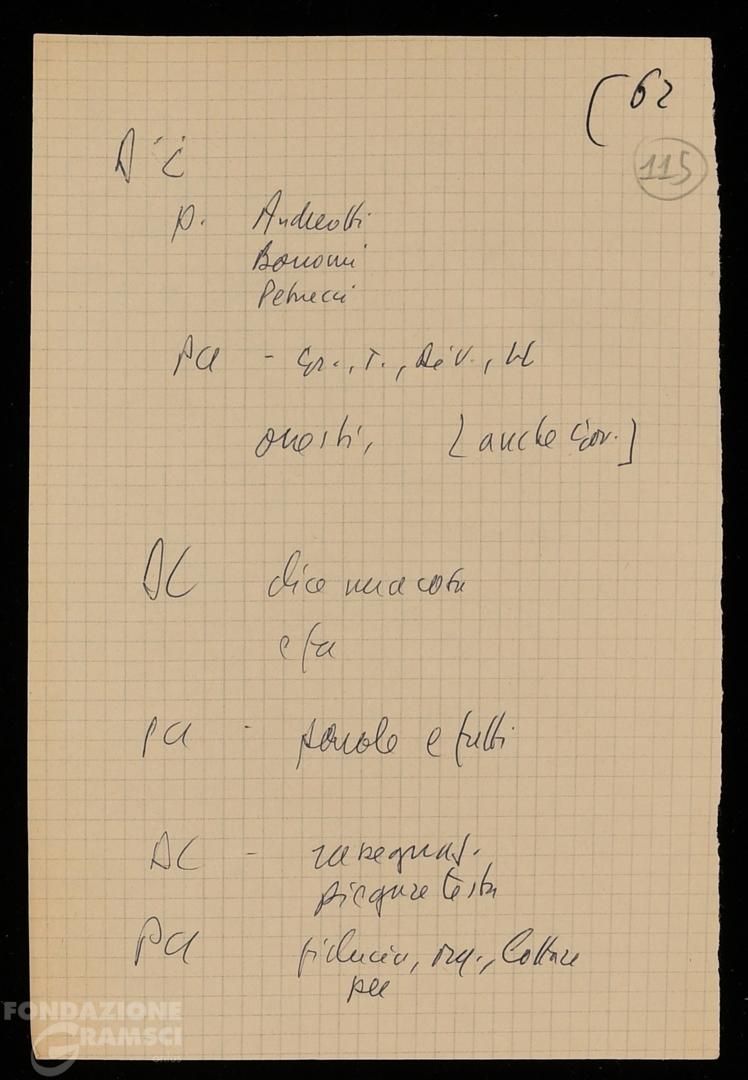 (62
115
DC
p. Andreotti
Bonomi
Petrucci
PCI - Gr., T., Di V., 
onesti, [anche Gov.]
DC dice una cosa
e fa
PCI - parole e fatti
DC - rassegnaz.
piegare testa
PCI fiducia, org., lottare
per
FONDAZIONE
GRAMSCI
onlus